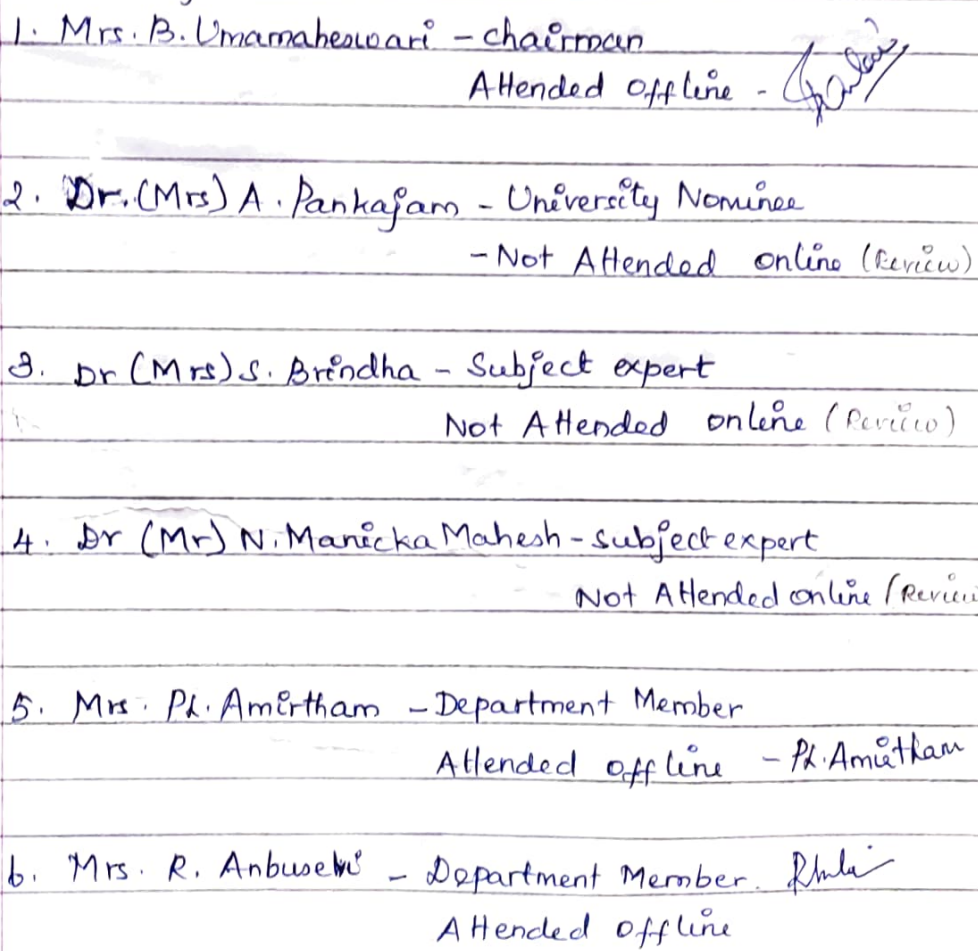 1. Mrs. B. Umamaheswari - chairman
Attended Offline -
2. Dr. (Mrs) A. Pankajam - University Nominee
- Not Attended online (Review)
3. Dr (Mrs) S. Brindha - Subject expert
Not Attended online (Review)
4. Dr (Mr) N. Manicka Mahesh - subject expert
Not Attended online (Review
5. Mrs. PL. Amirtham - Department Member
Attended offline - PL. Amirtham
6. Mrs. R. Anbuselvi - Department Member.
Attended offline